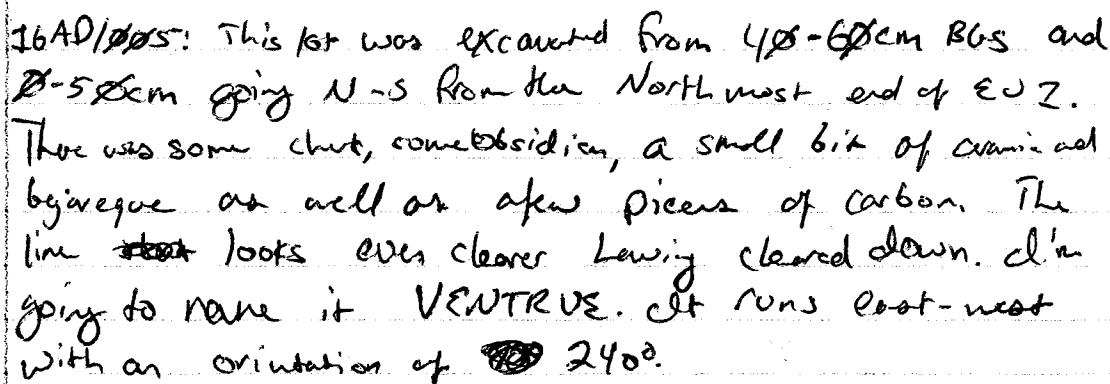 16AD/005: This lot was excavated from 40-60cm BGS and
0-50cm going N-S from the North most end of EU 2.
There was some chert, some obsidian, a small bit of ceramic and
bejareque as well as a few pieces of carbon. The
line looks even clearer having cleared down. I'm
going to name it VENTRUE. It runs east-west
with an orintation of 240°.